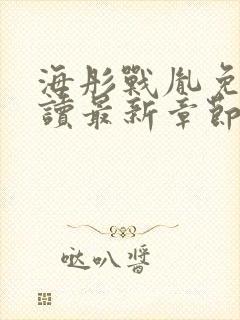 海彤戰胤免
讀最新章節
哒叭醬